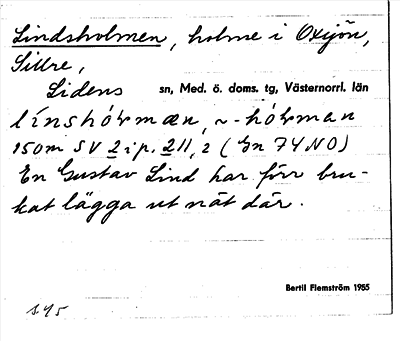 Lindsholmen, holme i Oxsjön,
Sillre,
Lidens sn, Med. ö. doms. tg, Västernorrl. län
línshóɫmæn, ~-hóɫman
150m SV 2 i p. 211,2 (Gn 74NO)
En Gustav Lind har förr bru-
kat lägga ut nät där.
Bertil Flemström 1955